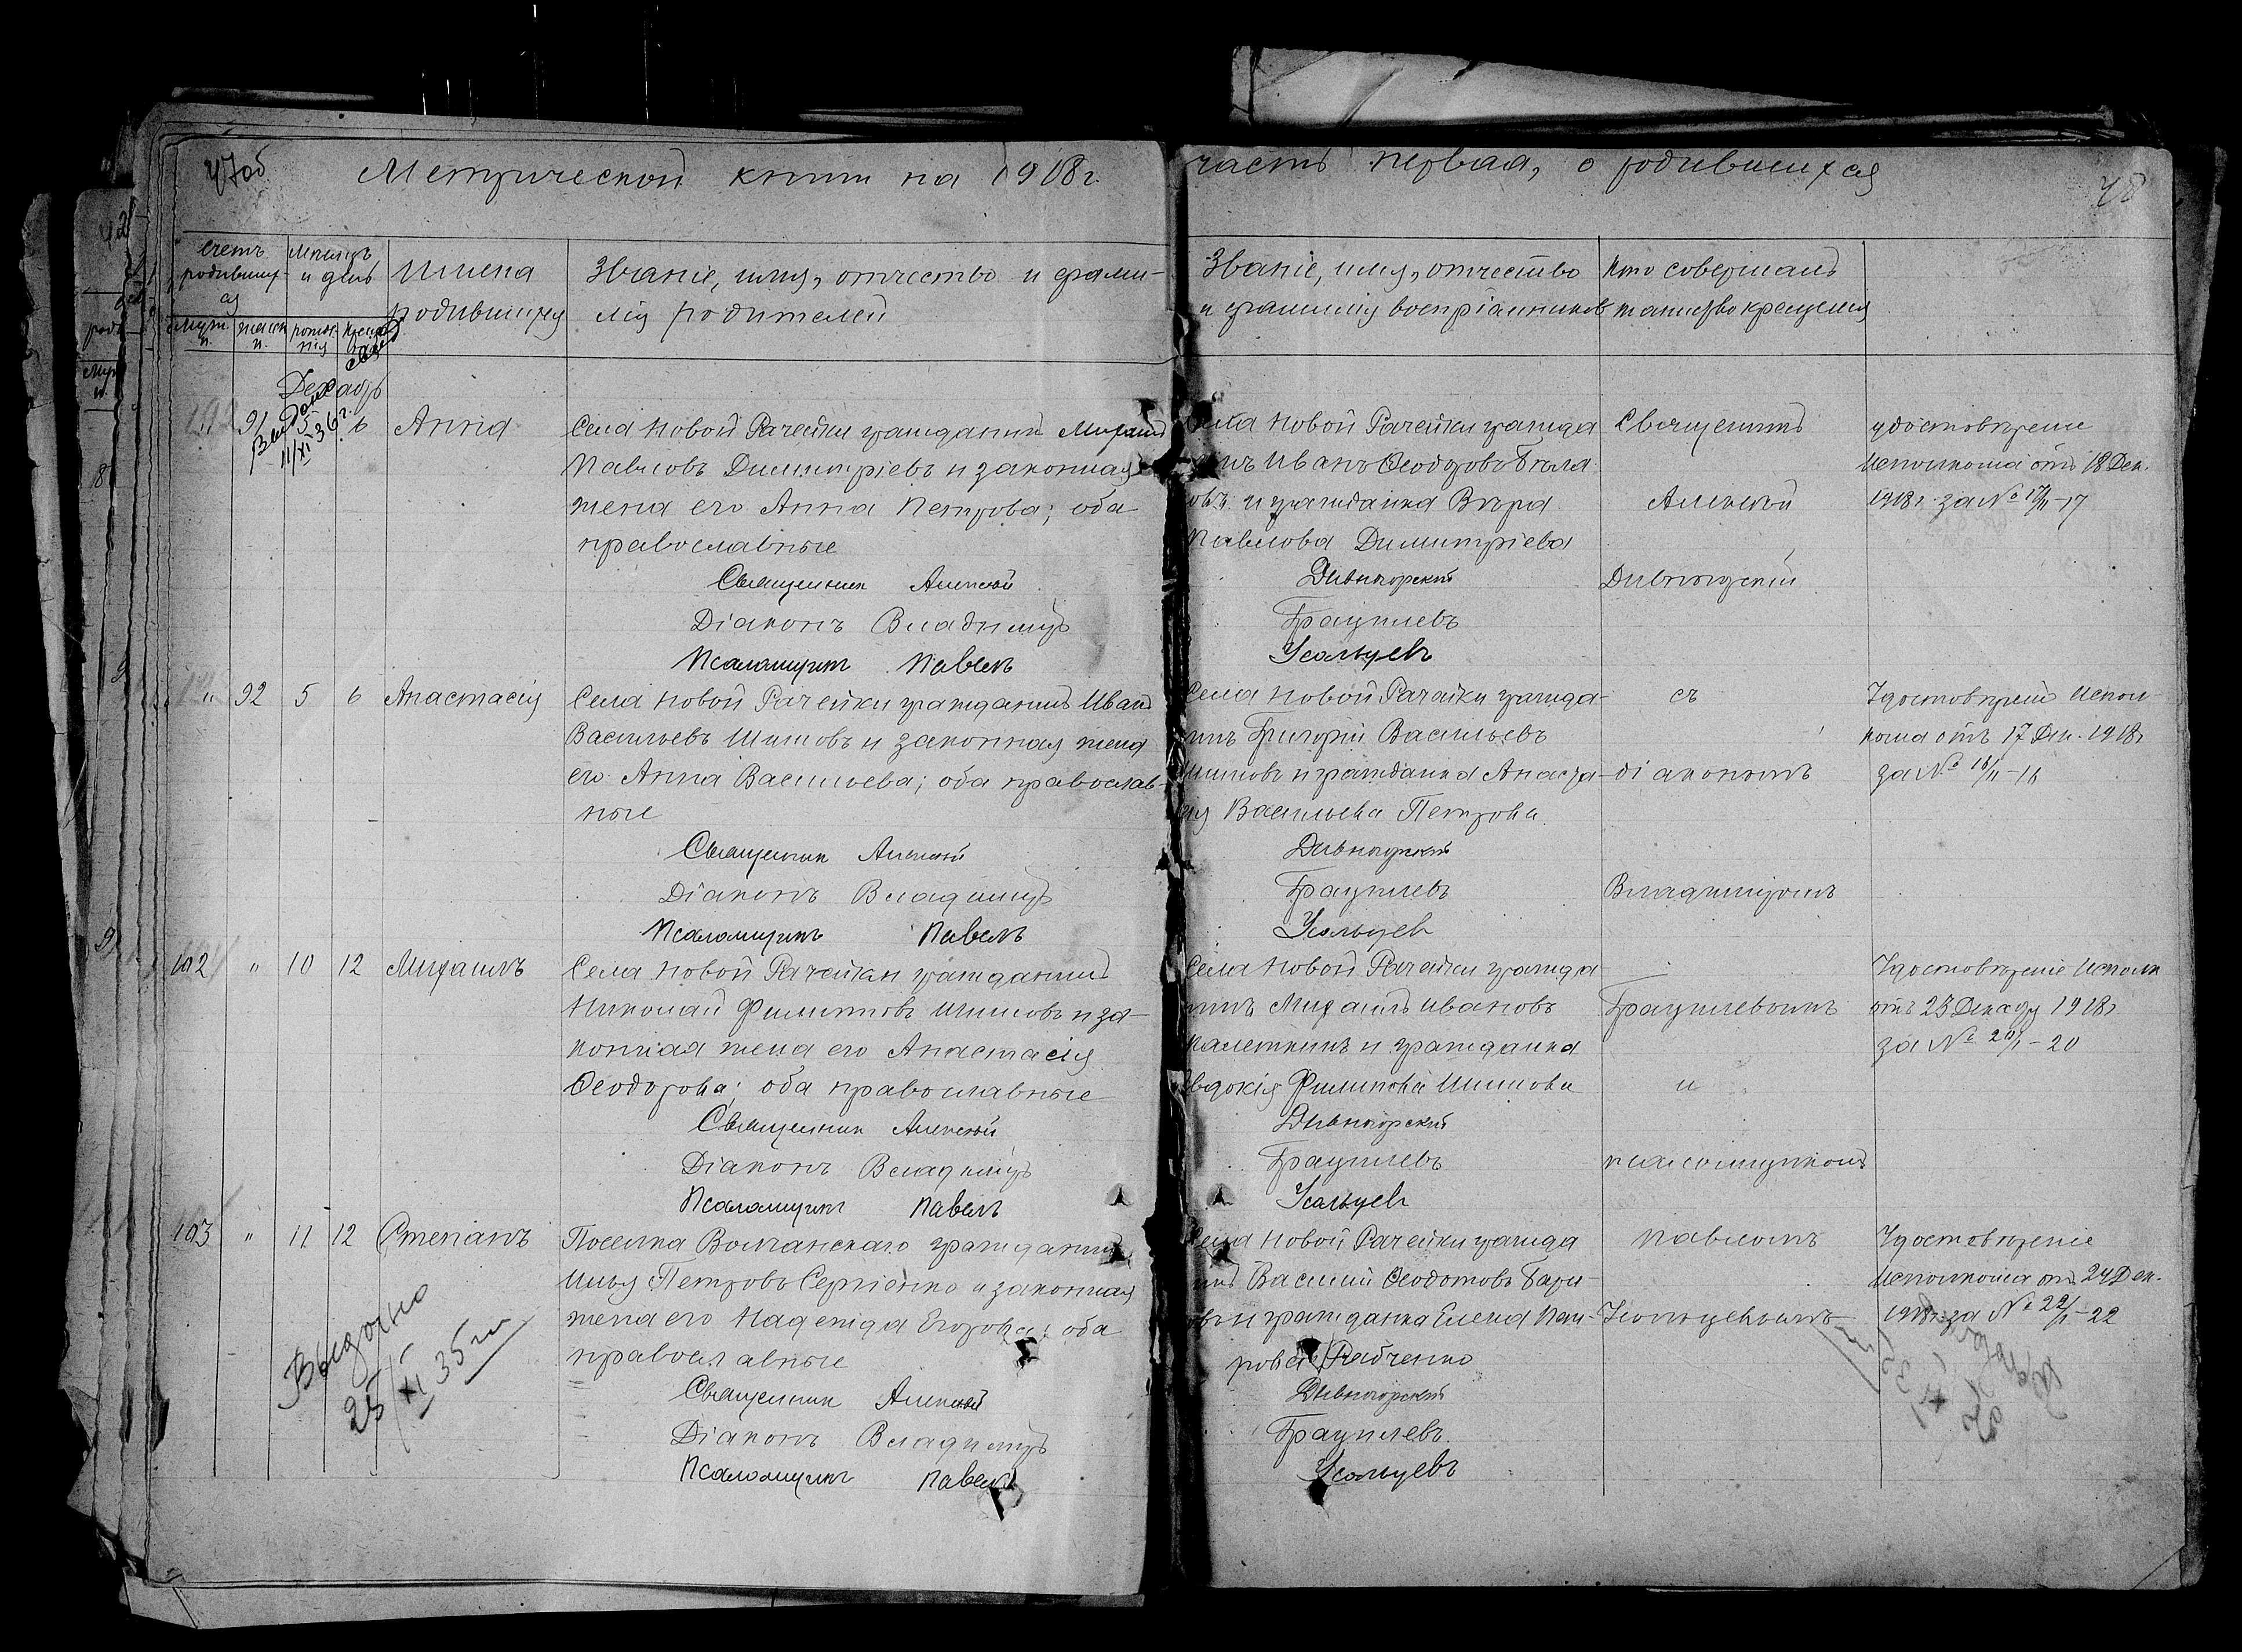 47об
Метрической книги на 1918 г.
часть первая, о родившихся
48
Счетъ родившихся
Мѣсяцъ и день
Имена
родившихся
Званіе, имя, отчество и фами-
лія родителей
Званіе, имя, отчество
и фамилія воспріемниковъ
Кто совершалъ
таинство крещенія
Декабрь
91 5 6 Анна
11/XI 36 г.
Села Новой Рачейки гражданинъ Михаилъ
Павловъ Димитріевъ и законная
жена его Анна Петрова; оба
православные
Священник Алексей
Діаконъ Владимiръ
Псаломщикъ Павелъ
Села Новой Рачейки гражда
нинъ Иванъ Ѳеодоровъ
и гражданка Вѣра
Павлова Димитріева
Дивногорский
Усольцевъ
Священникъ
Алексѣй
Дивногорскій
удостовѣреніе
Исполкома отъ 18 Дек.
1918 г. за №
" 92 5 6 Анастасія
Села Новой Рачейки гражданинъ Иванъ
Васильевъ Шишовъ и законная жена
его Анна Васильева; оба православ-
ные
Священник Алексей
Діаконъ Владимiръ
Псаломщикъ Павелъ
Села Новой Рачейки гражда-
нинъ Григорій Васильевъ
Шишовъ и гражданка Анаста-
сія Васильева Петрова
Дивногорский
Усольцев
съ
діакономъ
Владимiромъ
Удостовѣреніе Испол
кома отъ 17 Дек. 1918 г
за №
102 " 10 12 Михаилъ
Села Новой Рачейки гражданинъ
Николай Филипповъ Шишовъ и за-
конная жена его Анастасія
Ѳеодорова; оба православные
Священник Алексей
Діаконъ Владимiръ
Псаломщикъ Павелъ
Села Новой Рачейки гражда
нинъ Михаилъ Ивановъ
Калеткинъ и гражданка
Евдокія Филипова Шишова
Дивногорский
Усольцевъ
и
псаломщикомъ
Удостовѣреніе Исполк
отъ 23 Декабр 1918 г
за № 20/1-20
103 " 11 12 Степанъ
Поселка Волчанскаго гражданинъ
Илья Петровъ Сергіенко и законная
жена его Надежда Егорова; оба
православные
Священник Алексей
Діаконъ Владимiръ
Псаломщикъ Павелъ
Села Новой Рачейки гражда
нинъ Василій Ѳеодотовъ
и гражданка Елена Пет-
рова Рабченко
Дивногорский
Усольцевъ
Павломъ
Усольцевымъ
Удостовѣреніе
Исполкома отъ 24 Дек.
1918 г. за № 22/1-22
Выдано
25/XI 35 г.